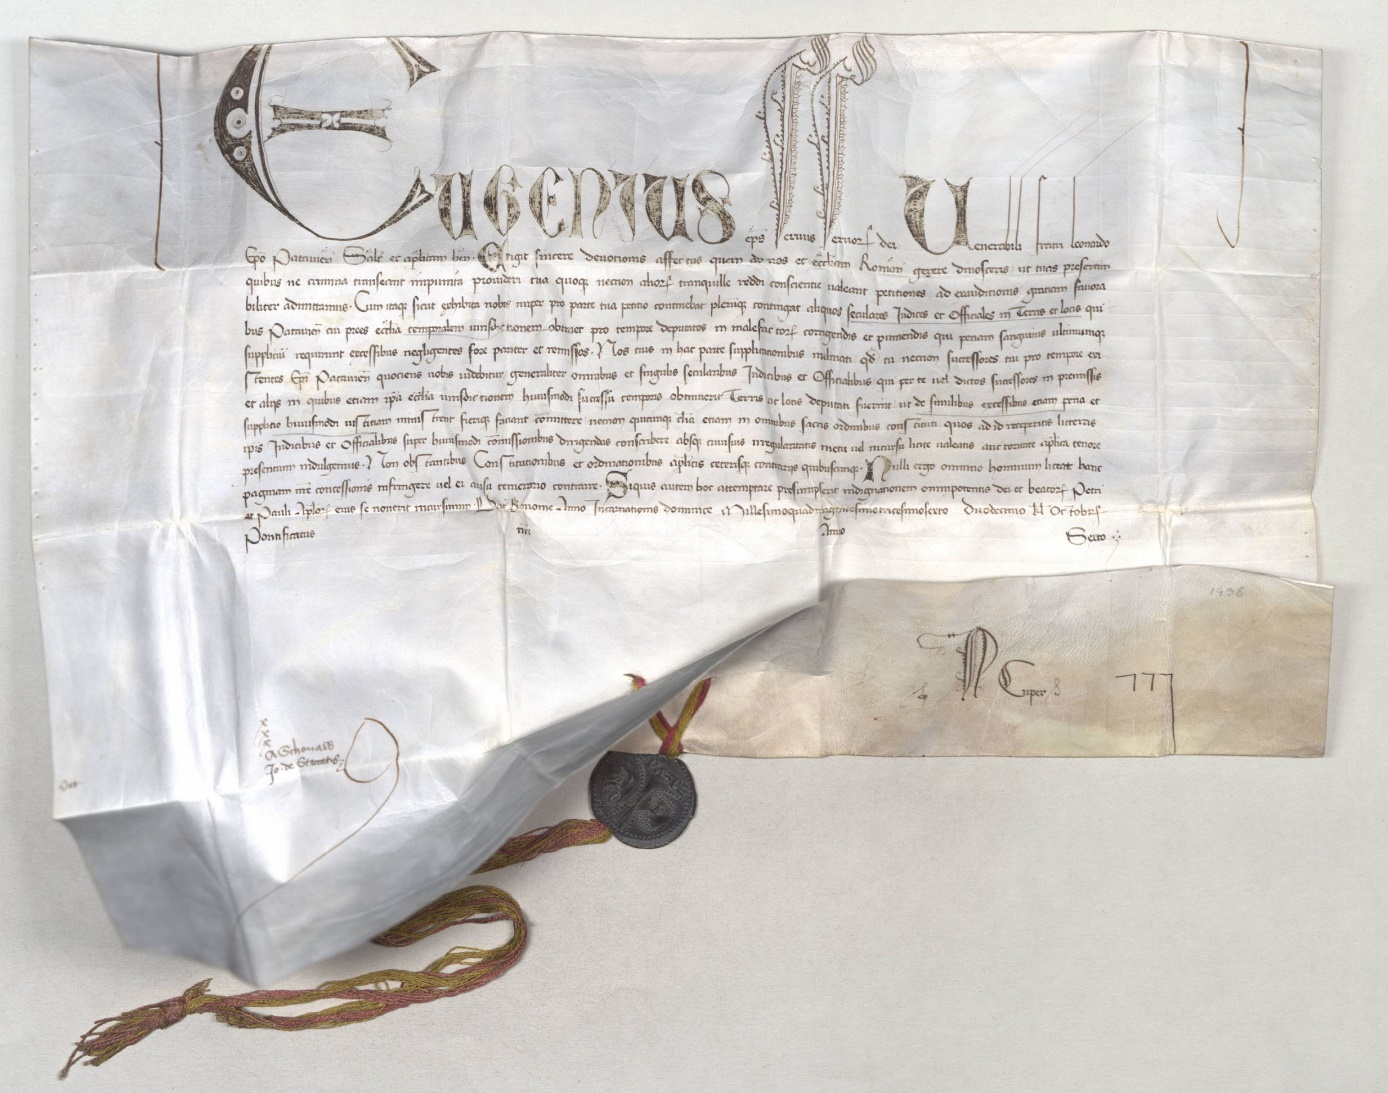 Eugenius ep̄s servus servoꝝ dei Venerabili fratri Leonardo
Ep̄o Patavien̄ Salt̄ et ap̄licam ben̄. Exigit sincere devotionis affectus quem ad nos et eccl̄iam Romān gerere dinosceris ut tuis presertim
quibus ne crimina transeant impunita provideri tua quoqꝫ necnon alioꝝ tranquille reddi conscientie valeant petitiones ad exauditionis gratiam favora
biliter admittamus. Cum itaqꝫ sicut exhibita nobis nuper pro parte tua petitio continebat pleruqꝫ contingat aliquos seculares Iudices et Officiales in Terris et locis qui
bus Patavien̄ tu prees eccl̄ia temporalem iurisdictionem obtinet pro tempore deputatos in malefactoꝝ corrigendis et puniendis qui penam sanguinis ultimumqꝫ
supplicii requirunt excessibus negligentes fore pariter et remissos. Nos tuis in hac parte supplicationibus inclinati qd̄ tu necnon successores tui pro tempore exi
stentes Ep̄i Patavien̄ quotiens vobis videbitur generaliter omnibus et singulis secularibus Iudicibus et Officialibus qui per te vel dictos successores in premissis
et alijs in quibus etiam ip̄a eccl̄ia iurisdictionem huiusmodi successu temporis obtinuerit Terris ac locis deputati fuerint ut de similibus excessibus etiam pena et
supplicio huiusmodi iustitiam ministrent fieriqꝫ faciant comittere necnon quicunqꝫ cl̄ici etiam in omnibus sacris ordinibus constituti quos ad id receperitis litteras
ip̄is Iudicibus et Officialibus super huiusmodi com̄issionibus dirigendas conscribere absqꝫ cuiusvis irregularitatis metu vel incursu licite valeatis auctoritate ap̄lica tenore
presentium indulgemus. Non obstantibus Constitutionibus et ordinationibus ap̄licis ceterisqꝫ contrarijs quibuscunqꝫ. Nulli ergo omnino hominum liceat hanc
paginam nr̄e concessionis infringere vel ei ausu temerario contraire. Siquis autem hoc attemptare presumpserit indignationem omnipotentis dei et beatoꝝ Petri
et Pauli Ap̄loꝝ eius se noverit incursurum. Dat̄ Bononie Anno Incarnationis dominice Millesimoquadringentesimotricesimosexto duodecimo kl̄ Octobris
Pontificatus nr̄i Anno Sexto
1436
N Cuper
x
x
x
A Schonaw
Jo. de Steccatis